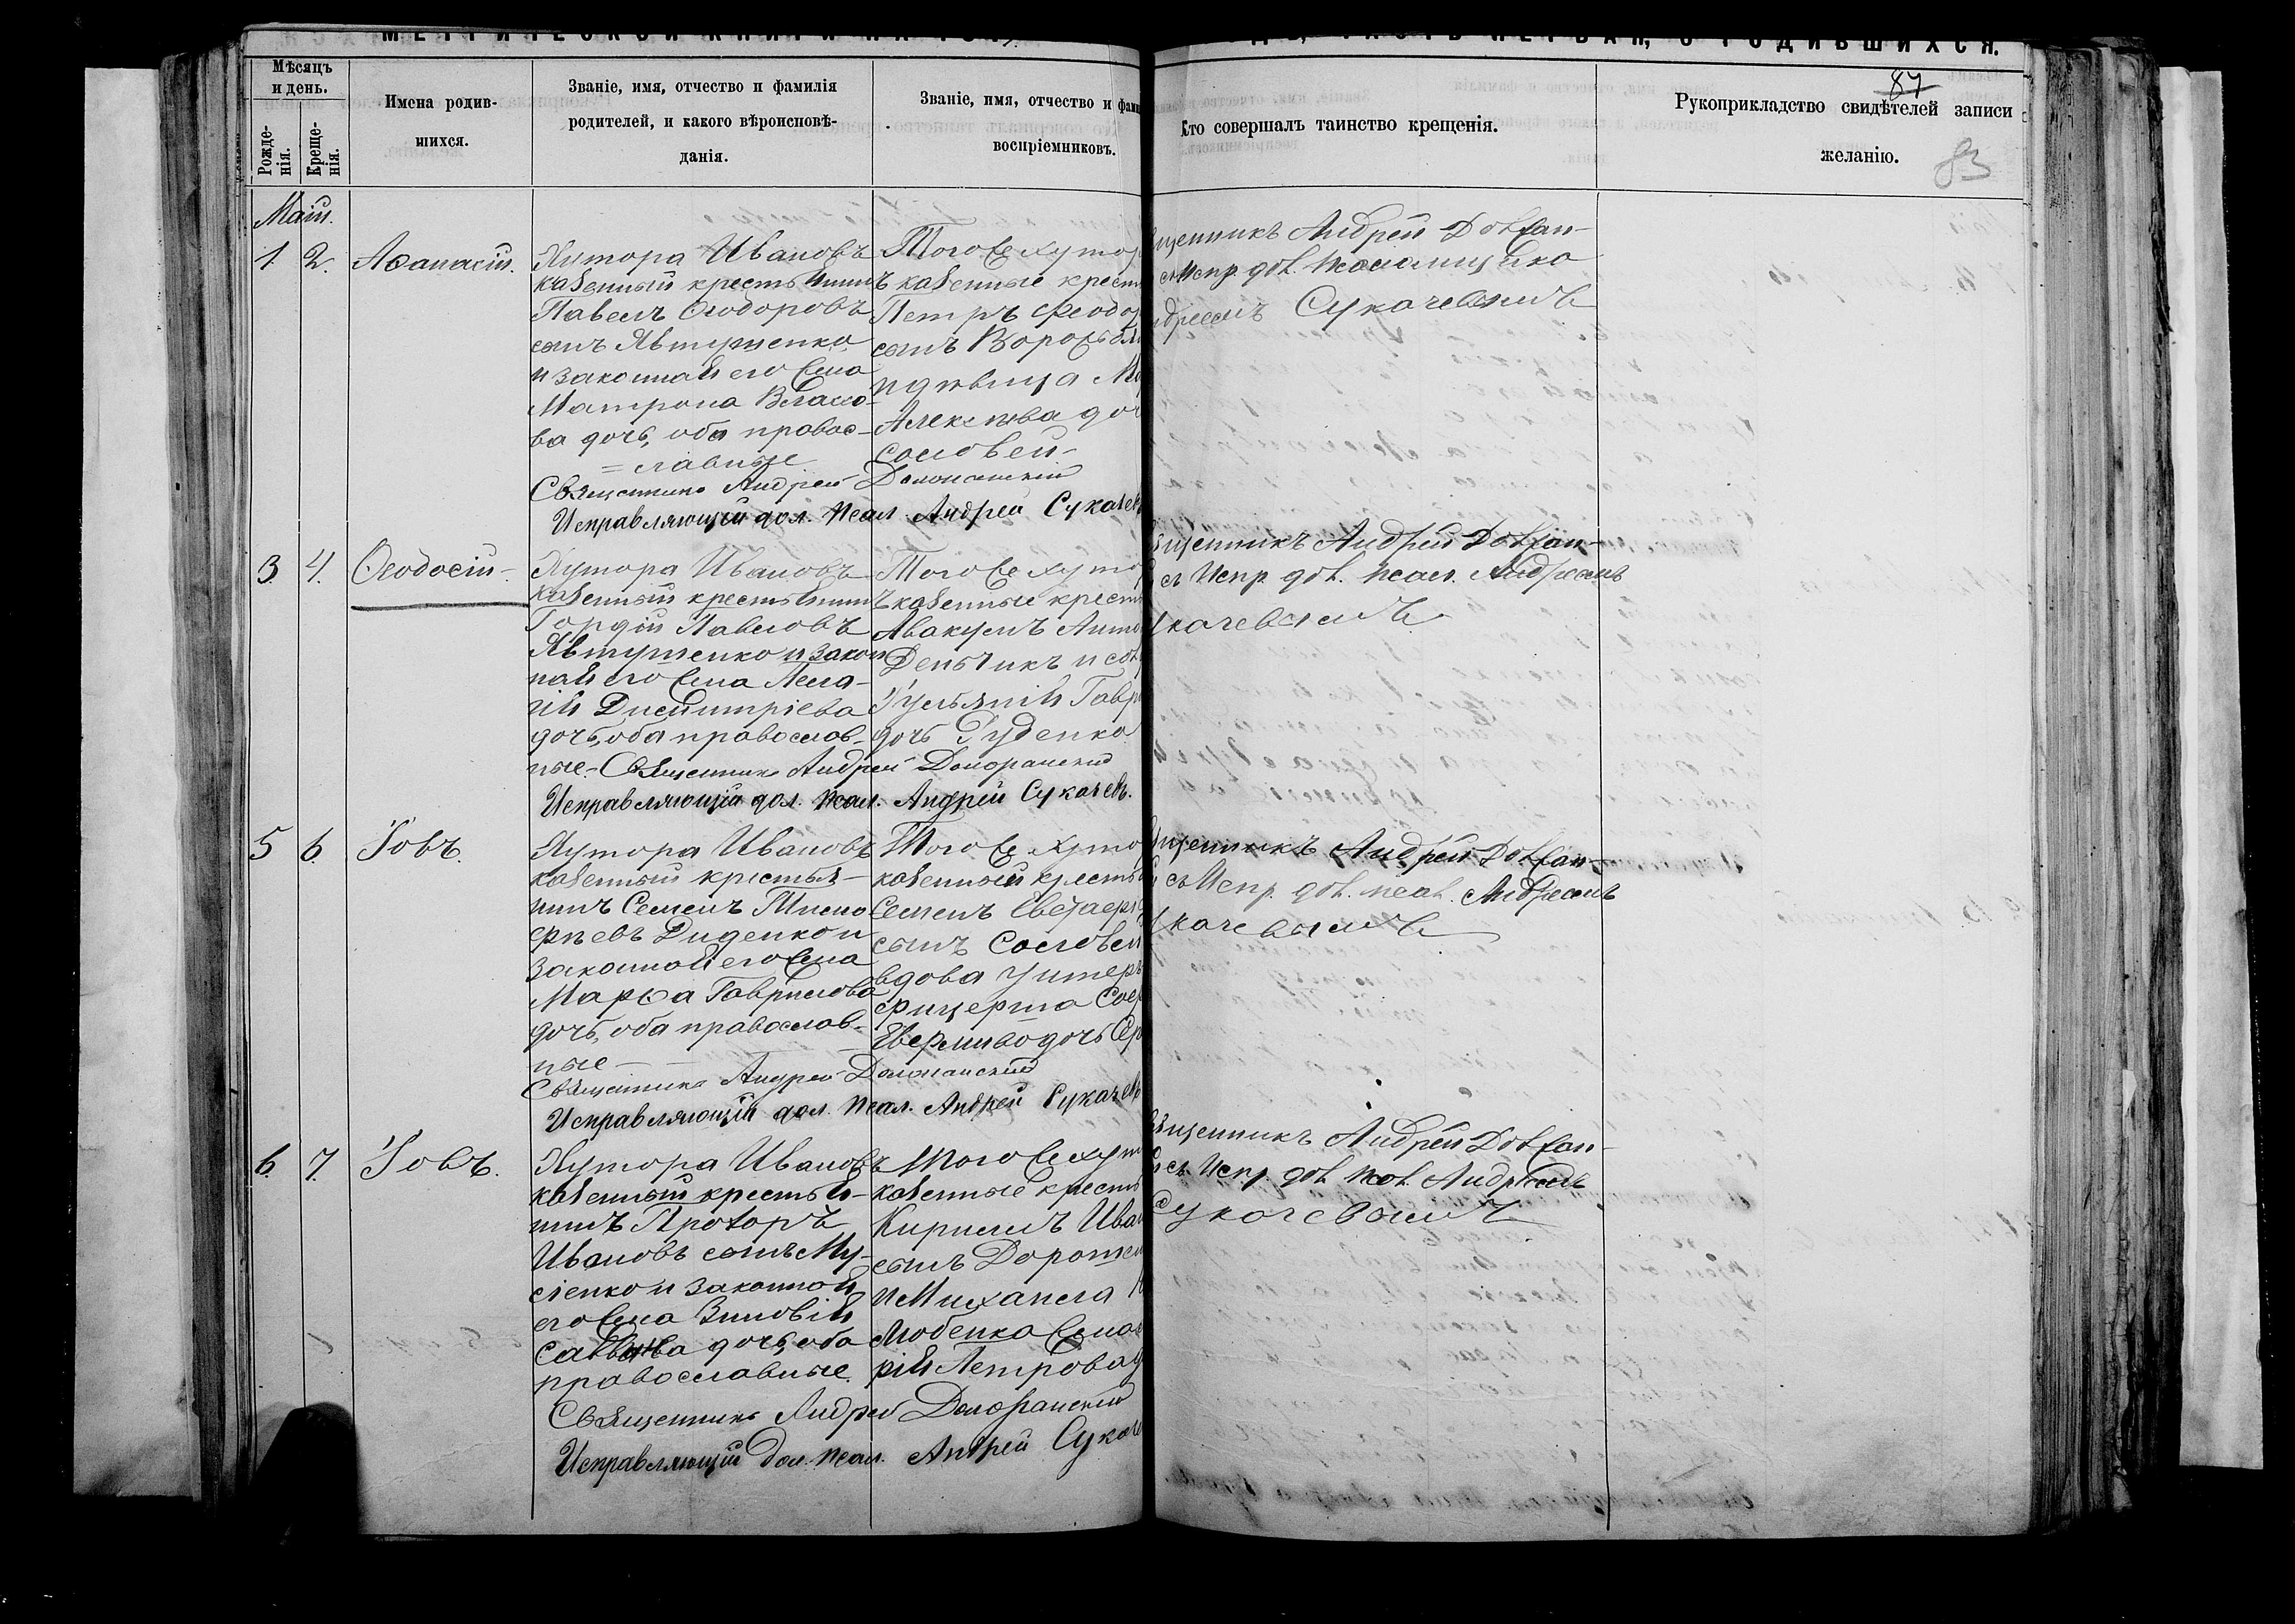 87
83
Мѣсяцъ
и день.
Рожде-
нія.
Креще-
нія.
Имена родив-
шихся.
Званіе, имя, отчество и фамилія
родителей, и какого вѣроисповѣ-
данія.
Званіе, имя, отчество и фами
воспріемниковъ.
Кто совершалъ таинство крещенія.
Рукоприкладство свидѣтелей записи
желанію.
Маій.
1. 2. Аѳанасій.
Хутора Ивановъ
казенный крестьянинъ
Павелъ Ѳеодоровъ
сынъ Явтушенко
и законная его жена
Матрона Власо-
ва дочь, оба правос-
=лавные
Того же хутор
казенные крест
Петръ Феодор
сынъ Воробьев
и дѣвица
Алексѣева доч
Соловей-
щенникъ Андрей Долган-
съ Испр. дол. псаломщика
дреемъ Сукачевымъ
Священникъ Андрей
Исправляющій дол. псал. Андрей Сукачев
3. 4. Ѳеодосій-
Хутора Ивановъ
казенный крестьянинъ
Гордій Павловъ
Явтушенко и закон
ная его жена Пела-
гія Димитріева
дочь, оба православ-
ные.-
Того же хуто
казенные крест
Авакумъ Анто
Деньчикъ и
Іульянія Гавр
дочь Руденко
щенникъ Андрей Долган-
съ Испр. дол. псал. Андреемъ
укачевымъ
Священникъ Андрей
Исправляющій дол. псал. Андрей Сукачевъ.
5 6. Іовъ.
Хутора Ивановъ
казенный крестья-
нинъ Семенъ Тимо-
ѳеевъ Диденко и
законная его жена
Марѳа Гаврилова
дочь, оба православ-
ные-
Того же хуто
казенный кресть
Семенъ
сынъ Соловей
вдова унтеръ
фицерша
дочь
щенникъ Андрей Долган-
съ Испр. дол. псал. Андреемъ
укачевымъ
Священникъ Андрей
Исправляющій дол. псал. Андрей Сукачевъ
6. 7. Іовъ.
Хутора Ивановъ
казенный крестья-
нинъ Прохоръ
Ивановъ сынъ Му-
сіенко и законная
его жена Зиновія
Саввина дочь, оба
православные.
Того же хут
казенные кресть
Кириллъ Ива
сынъ Дорошен
и Михаила
Любенка жена
рія Петрова д
щенникъ Андрей Долган-
съ Испр. дол. псал. Андреемъ
Сукачевымъ
Священникъ Андрей
Исправляющій дол. псал. Андрей Сукаче